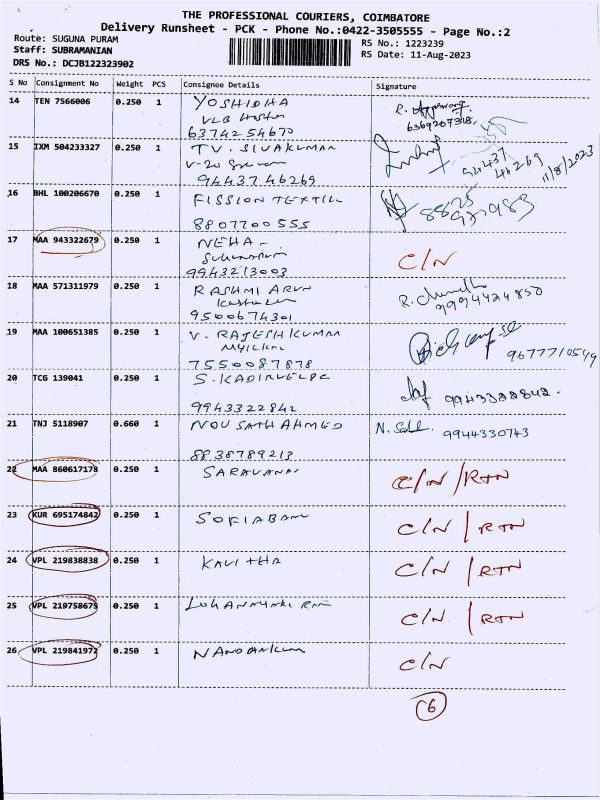 THE PROFESSIONAL COURIERS, COIMBATORE
Delivery Runsheet - PCK - Phone No.:0422-3505555 - Page No.:2
Route: SUGUNA PURAM
RS No.: 1223239
Staff: SUBRAMANIAN
RS Date: 11-Aug-2023
DRS No.: DCJB122323902
S No Consignment No Weight PCS Consignee Details Signature
14 TEN 7566006 0.250 1 YOSHIDHA
VLB
6374254670
6369207318
15 IXM 504233327 0.250 1 TV. SIVAKUMAR
V-20
9443746269
94437
46269
11/8/2023
16 BHL 100206670 0.250 1 FISSION TEXTILL
8807700555
17 MAA 943322679 0.250 1 NEHA - C/N
9943213003
18 MAA 571311979 0.250 1 RASHMI ARUN
9500674301
9994424850
19 MAA 100651385 0.250 1 V. RAJESHKUMAR
7550087878
9677710549
20 TCG 139041 0.250 1 S. KADIRVELPC
9943322842
9943322842.
21 TNJ 5118907 0.660 1 NOUSATH AHMED
8838789213
9944330743
22 MAA 860617178 0.250 1 SARAVANAN C/N/RTN
23 KUR 695174842 0.250 1 SOFIABANU C/N/RTN
24 VPL 219838838 0.250 1 KAVITHA C/N/RTN
25 VPL 219758675 0.250 1 C/N/RTN
26 VPL 219841972 0.250 1 NANDANKUM C/N
6